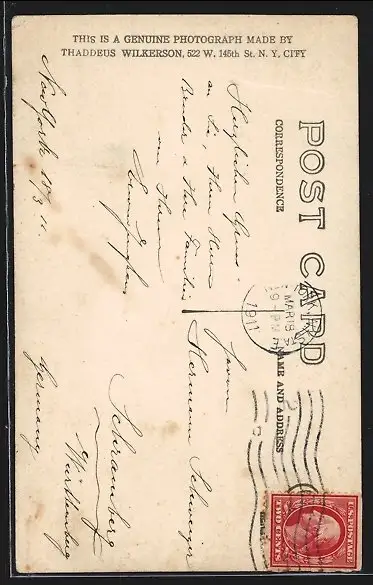 THIS IS A GENUINE PHOTOGRAPH MADE BY
THADDEUS WILKERSON, 522 W. 145th St. N. Y. CITY
POST CARD
CORRESPONDENCE
NAME AND ADDRESS
New York 18/3 11.
Herzlichen Gruss
an Sie, Ihren Herrn
Bruder & Ihre Familie
von Ihrem
Herrn
Hermann Schweizer
Schramberg
Württemberg
Germany
MAR 18
9 - PM
1911
U.S. POSTAGE
TWO CENTS